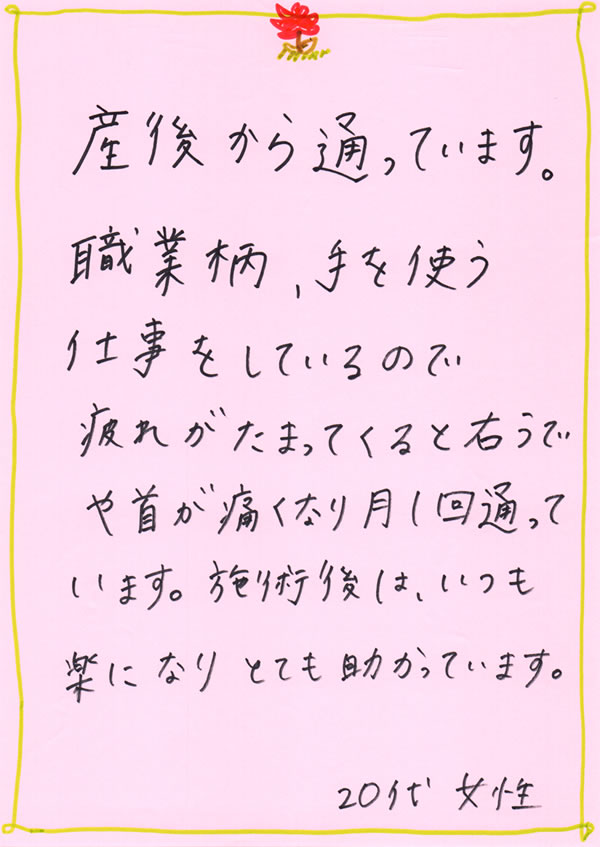 産後から通っています。
職業柄、手を使う
仕事をしているので
疲れがたまってくると右うで
や首が痛くなり月1回通って
います。施術後は、いつも
楽になりとても助かっています。
20代 女性